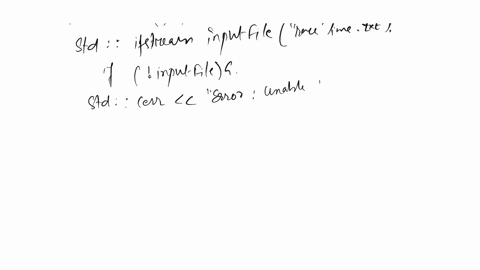 std :: ifstream inputFile ("race time.txt
if (!inputFile){
std :: cerr << "Error : unable